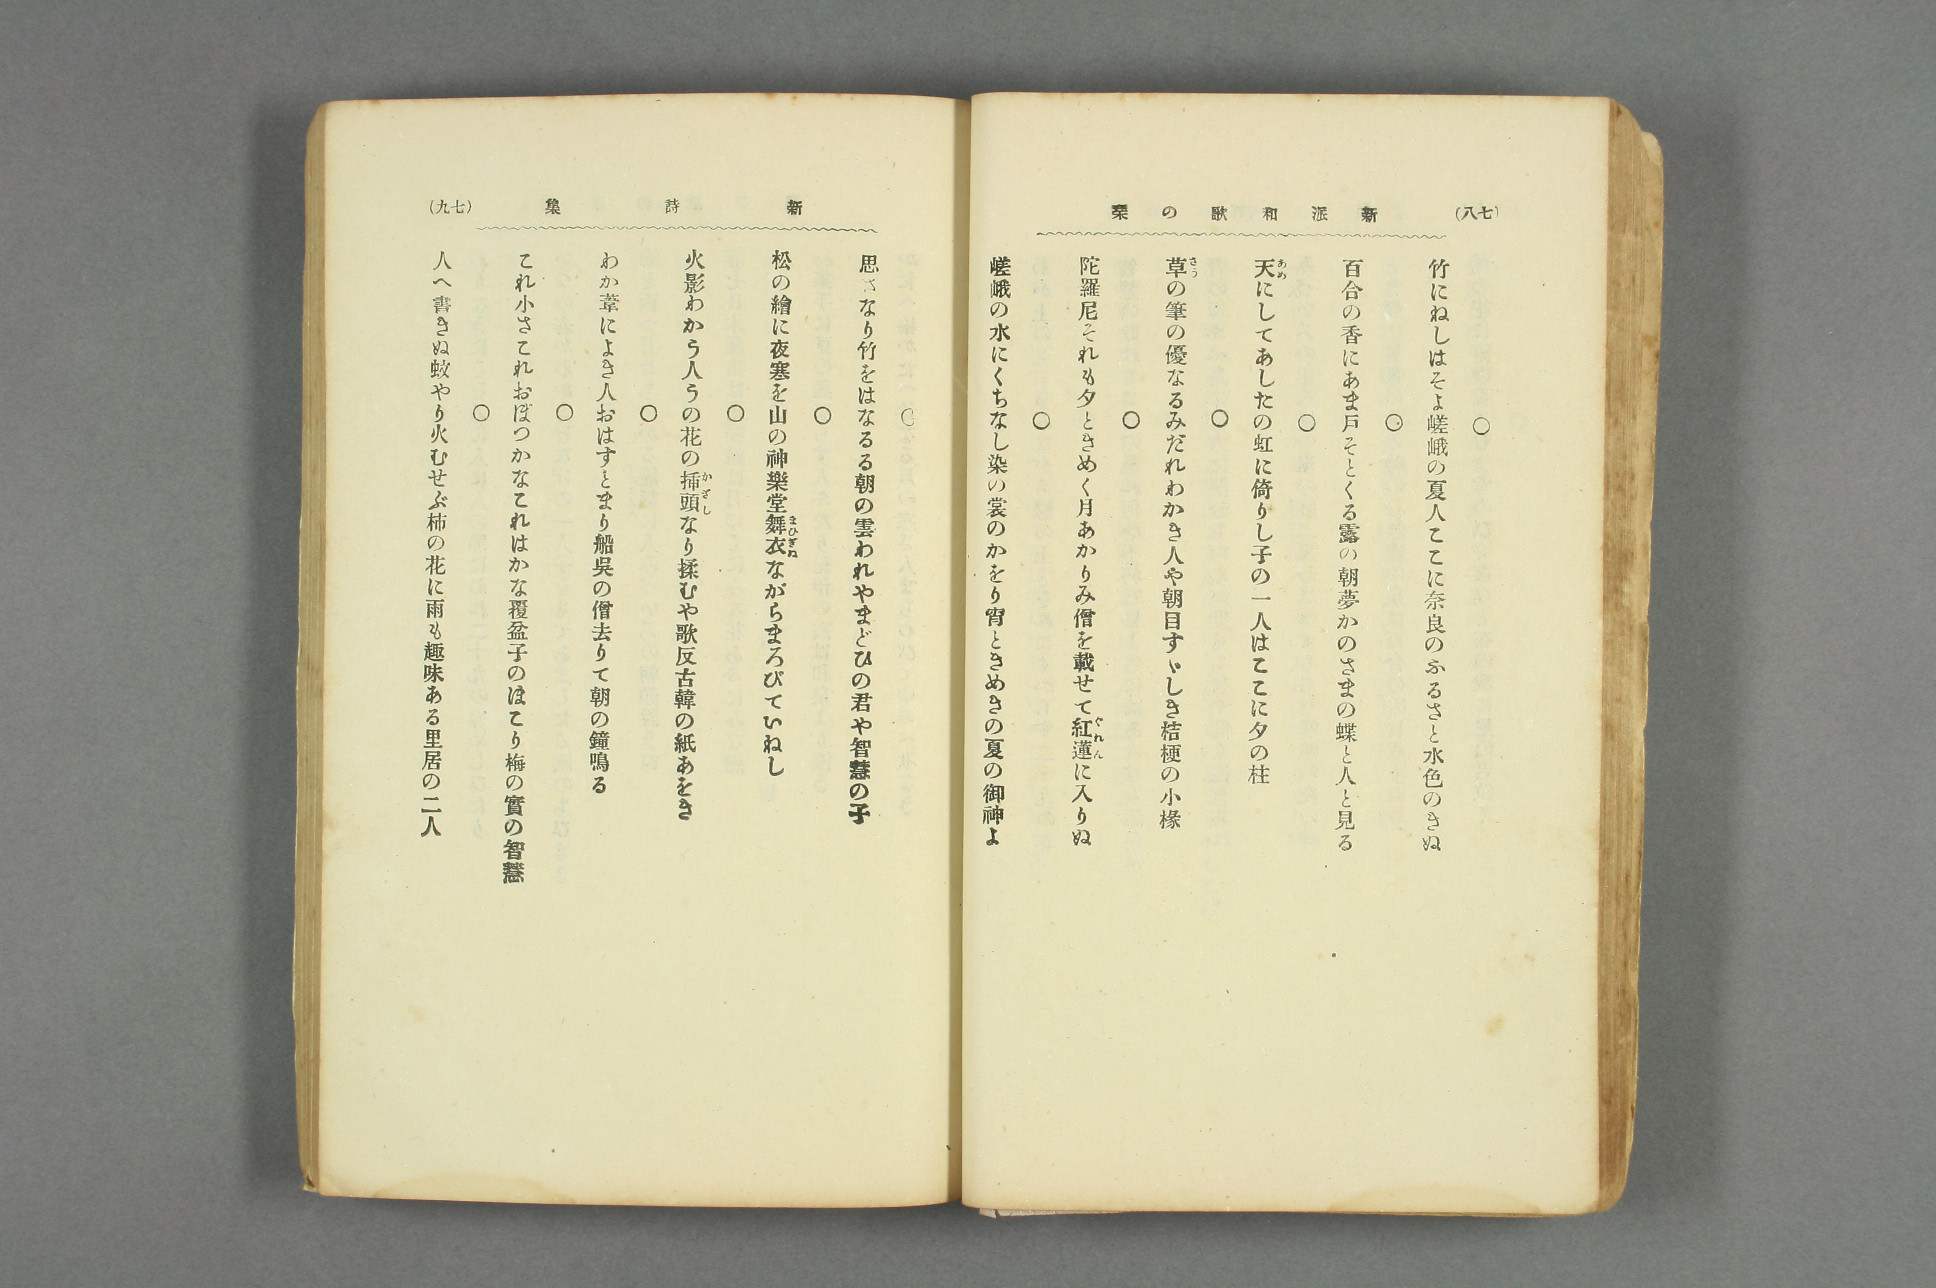 (七八)
新派和歌の栞
○
竹にねしはそよ嵯峨の夏人ここに奈良のふるさと水色のきぬ
○
百合の香にあま戸そとくる露の朝夢かのさまの蝶と人と見る
○
天にしてあしたの虹に倚りし子の一人はここに夕の柱
あめ
○
草の筆の優なるみだれわかき人や朝目すゞしき桔梗の小椽
さう
○
陀羅尼それも夕ときめく月あかりみ僧を載せて紅蓮に入りぬ
ぐれん
○
嵯峨の水にくちなし染の裳のかをり宵ときめきの夏の御神よ
新詩集
(七九)
○
思さなり竹をはなるる朝の雲われやまどひの君や智慧の子
○
松の繪に夜寒を山の神樂堂舞衣ながらまろびていねし
まひぎぬ
○
火影わかう人うの花の挿頭なり揉むや歌反古韓の紙あをき
かざし
○
わか葦によき人おはすとまり船呉の僧去りて朝の鐘鳴る
○
これ小さこれおぼつかなこれはかな覆盆子のほこり梅の實の智慧
○
人へ書きぬ蚊やり火むせぶ柿の花に雨も趣味ある里居の二人